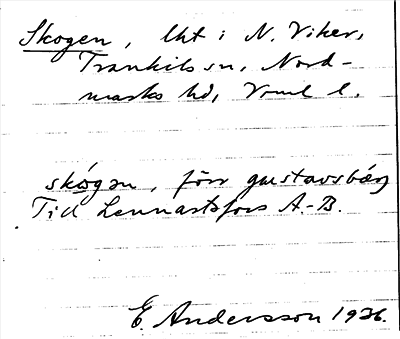 Skogen, lht i N. Viker,
Trankils sn, Nord-
marks hd, Vrml l.
skógən, förr gustavsbærj
Tid Lennartsfors A.-B.
E. Andersson 1936.